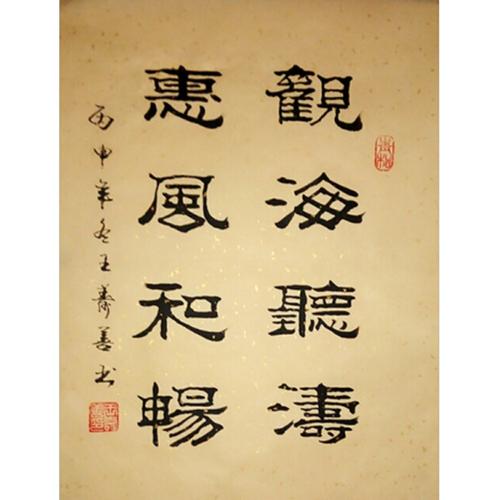 觀海聽濤
惠風和暢
丙申年冬王壽善书